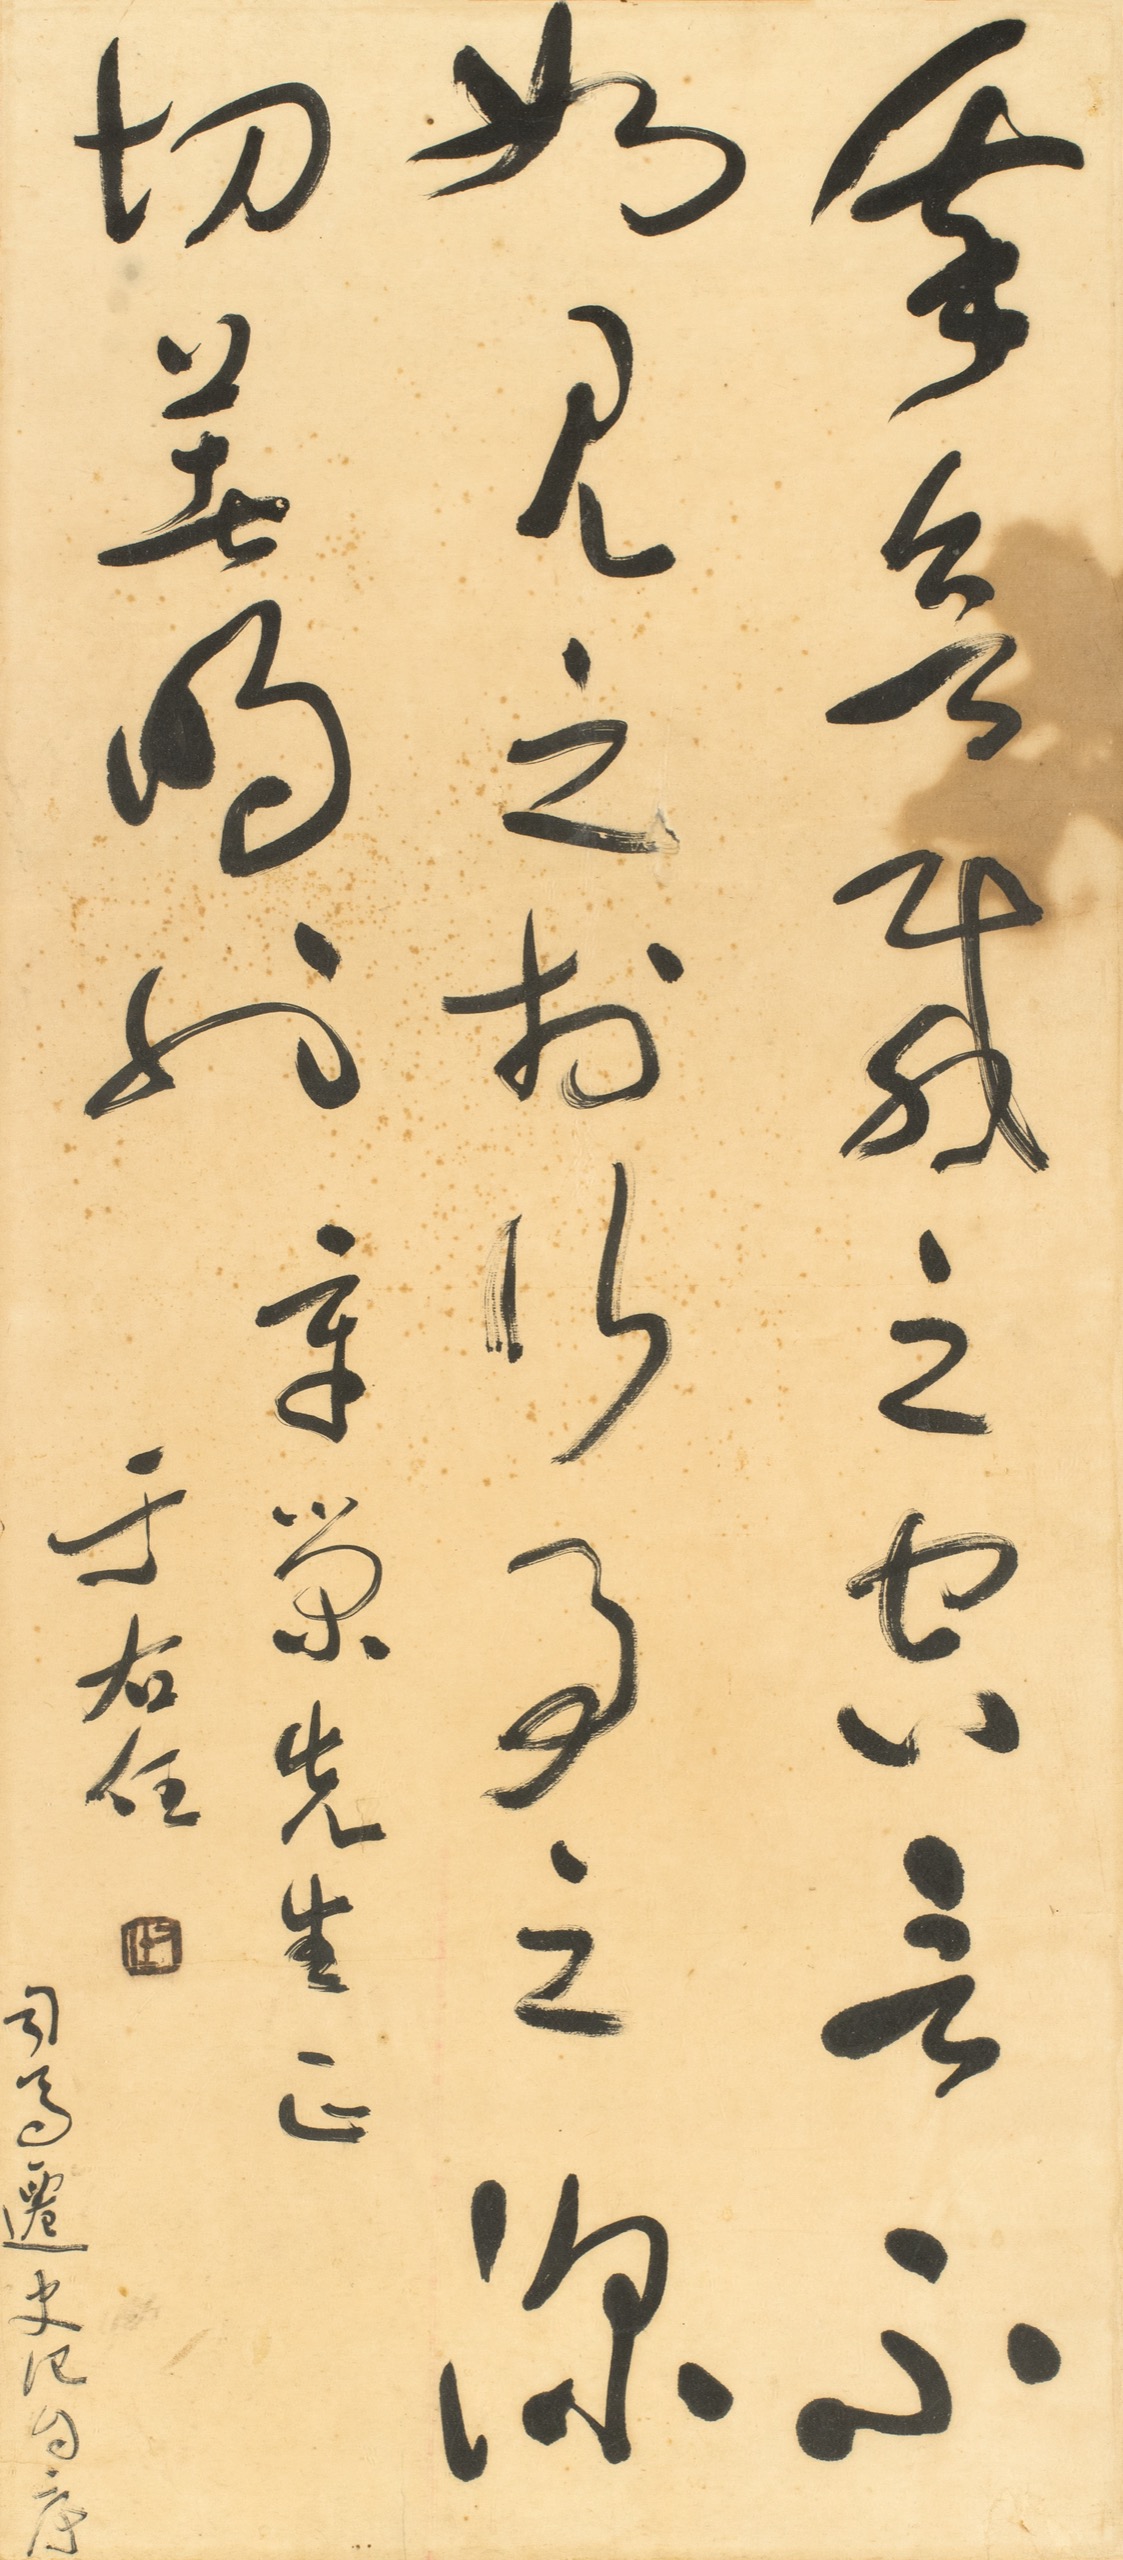 我欲載之空言不
如見之於行事之深
切著明也
章榮先生正
于右任
右任
司馬遷史記自序